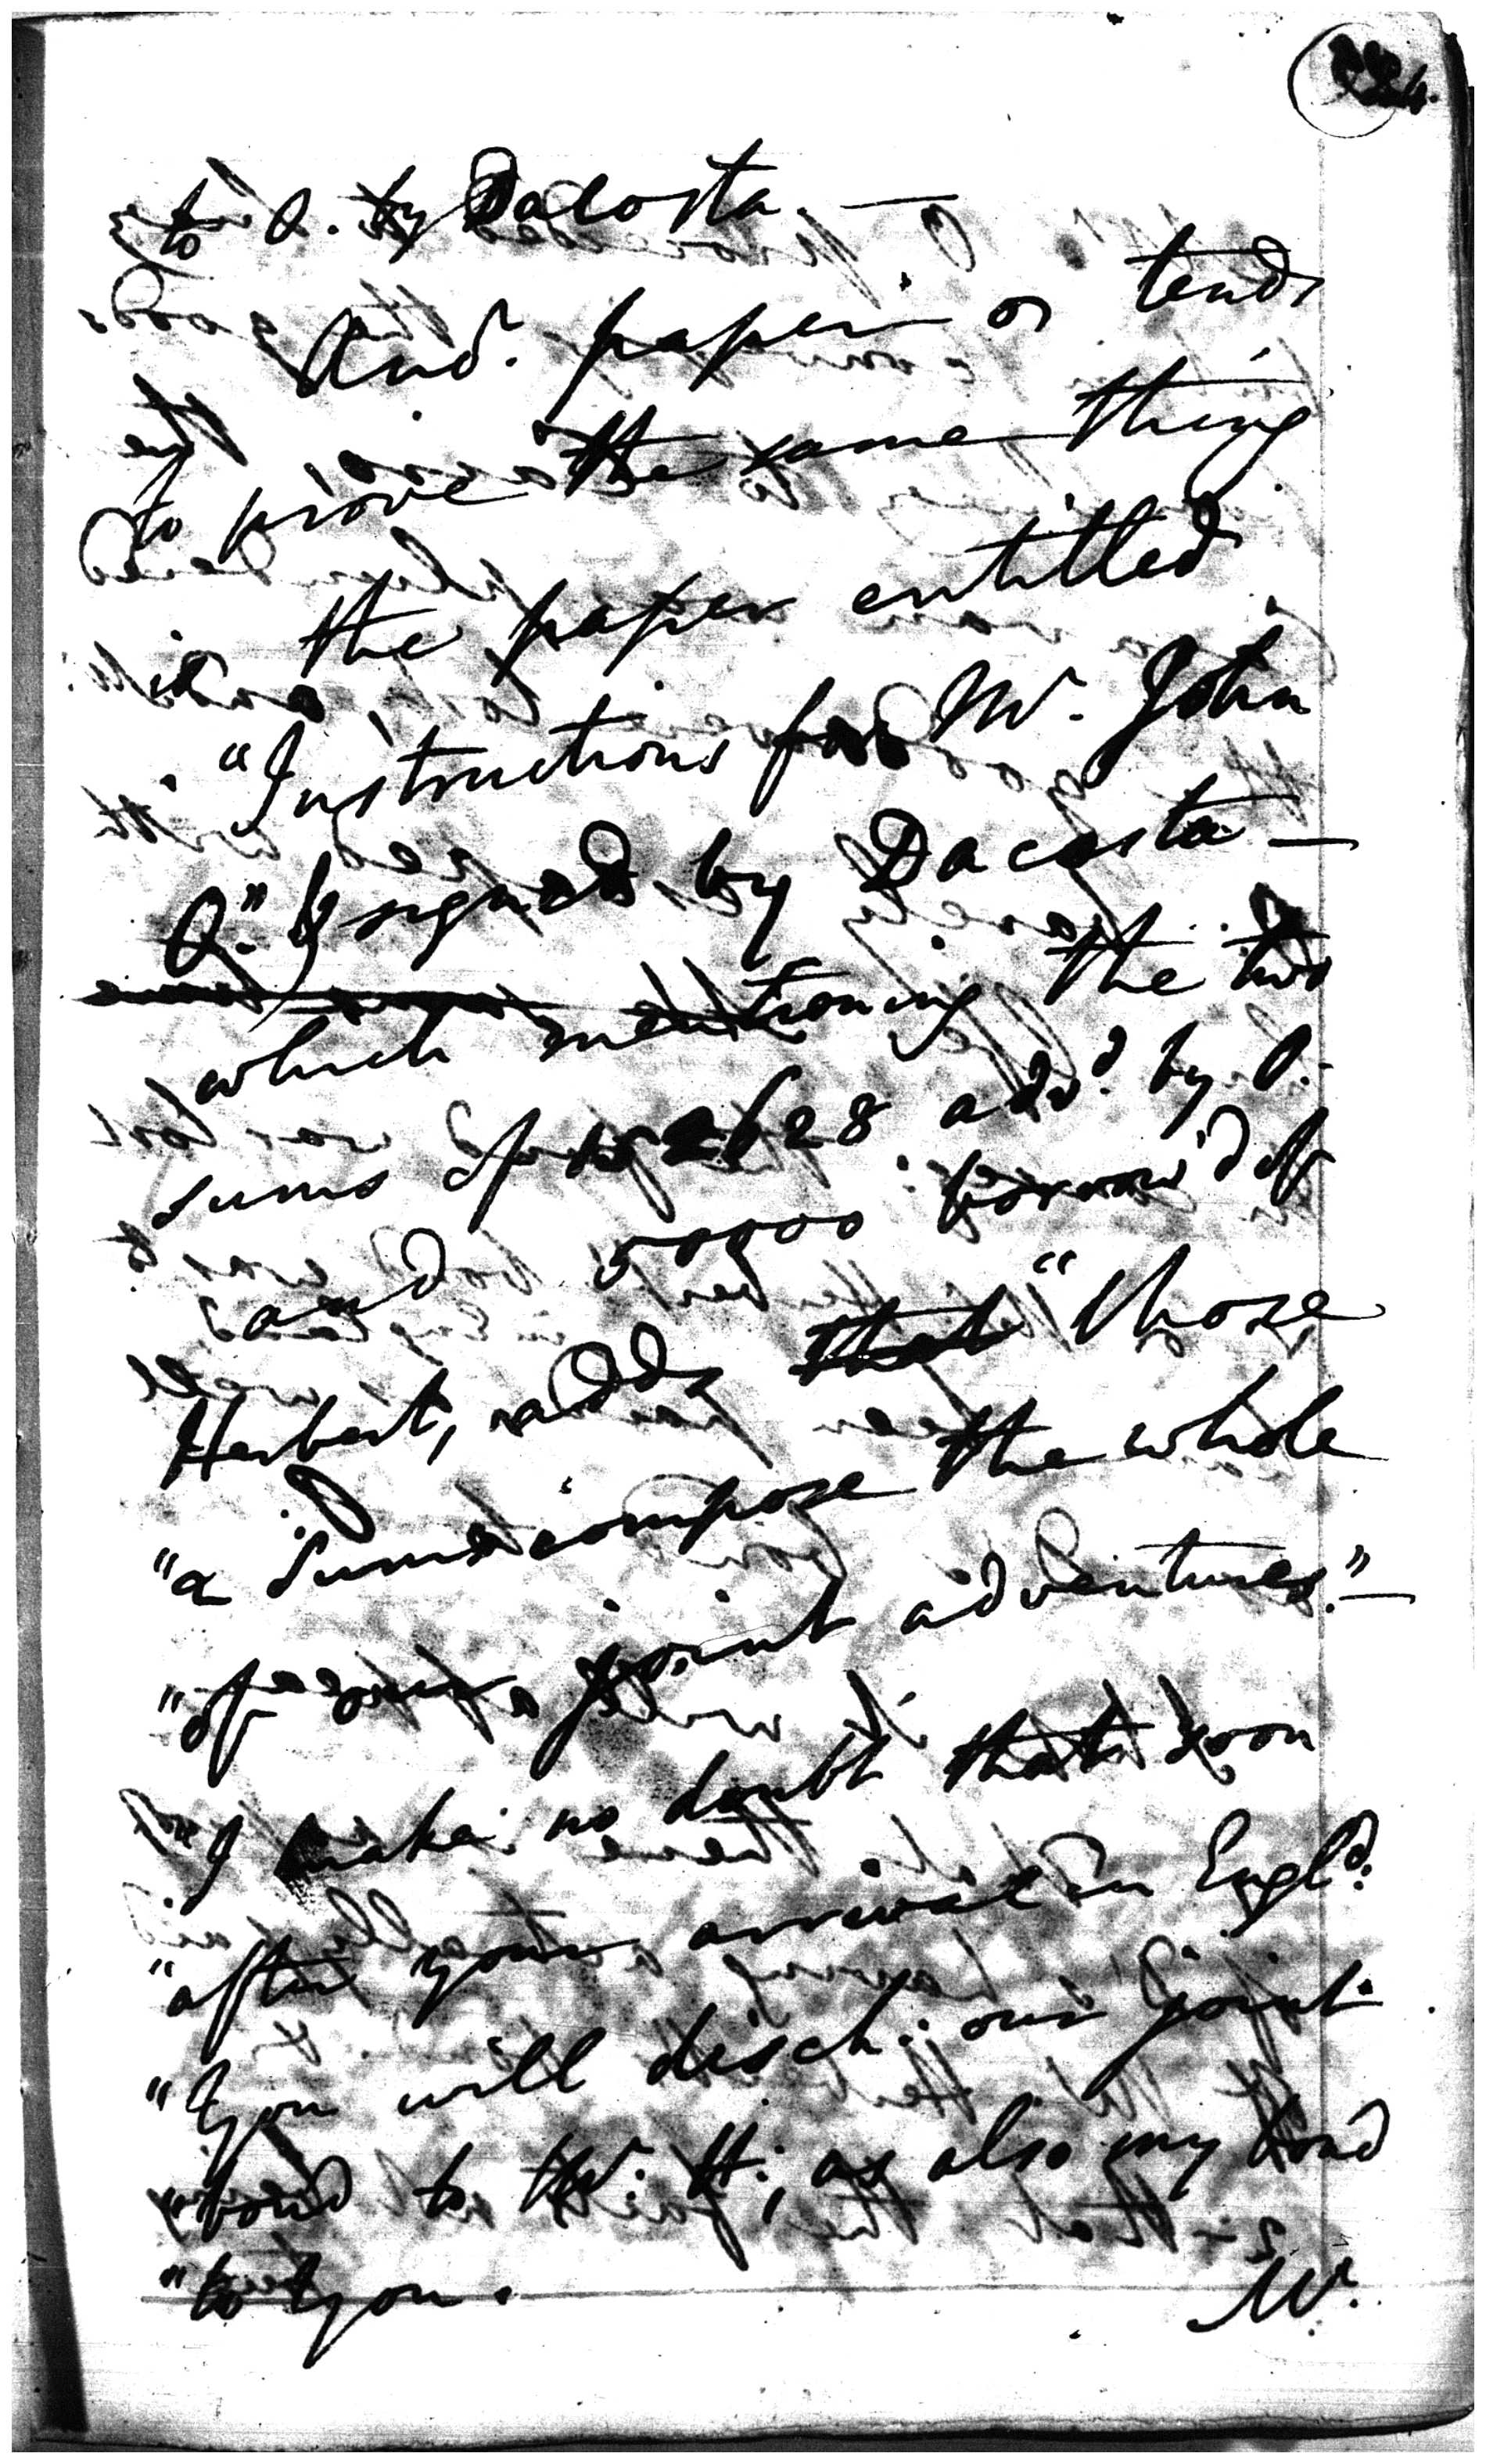 to Q. by Dacosta. —
And. paper tends
to prove the same thing
is the paper entitled
"Instructions for Mr. John
Q." signed by Dacosta —
which mentioning the two
sums of 2628 advd. by Q.
and 50000 borrow'd of
Herbert, adds that "those
"2 Sums compose the whole
"of our joint adventures." —
"I make no doubt that soon
"after your arrival in Engld.
"you will disch: our joint
"bond to Mr. H:, as also my bond
"to you.
Mr.